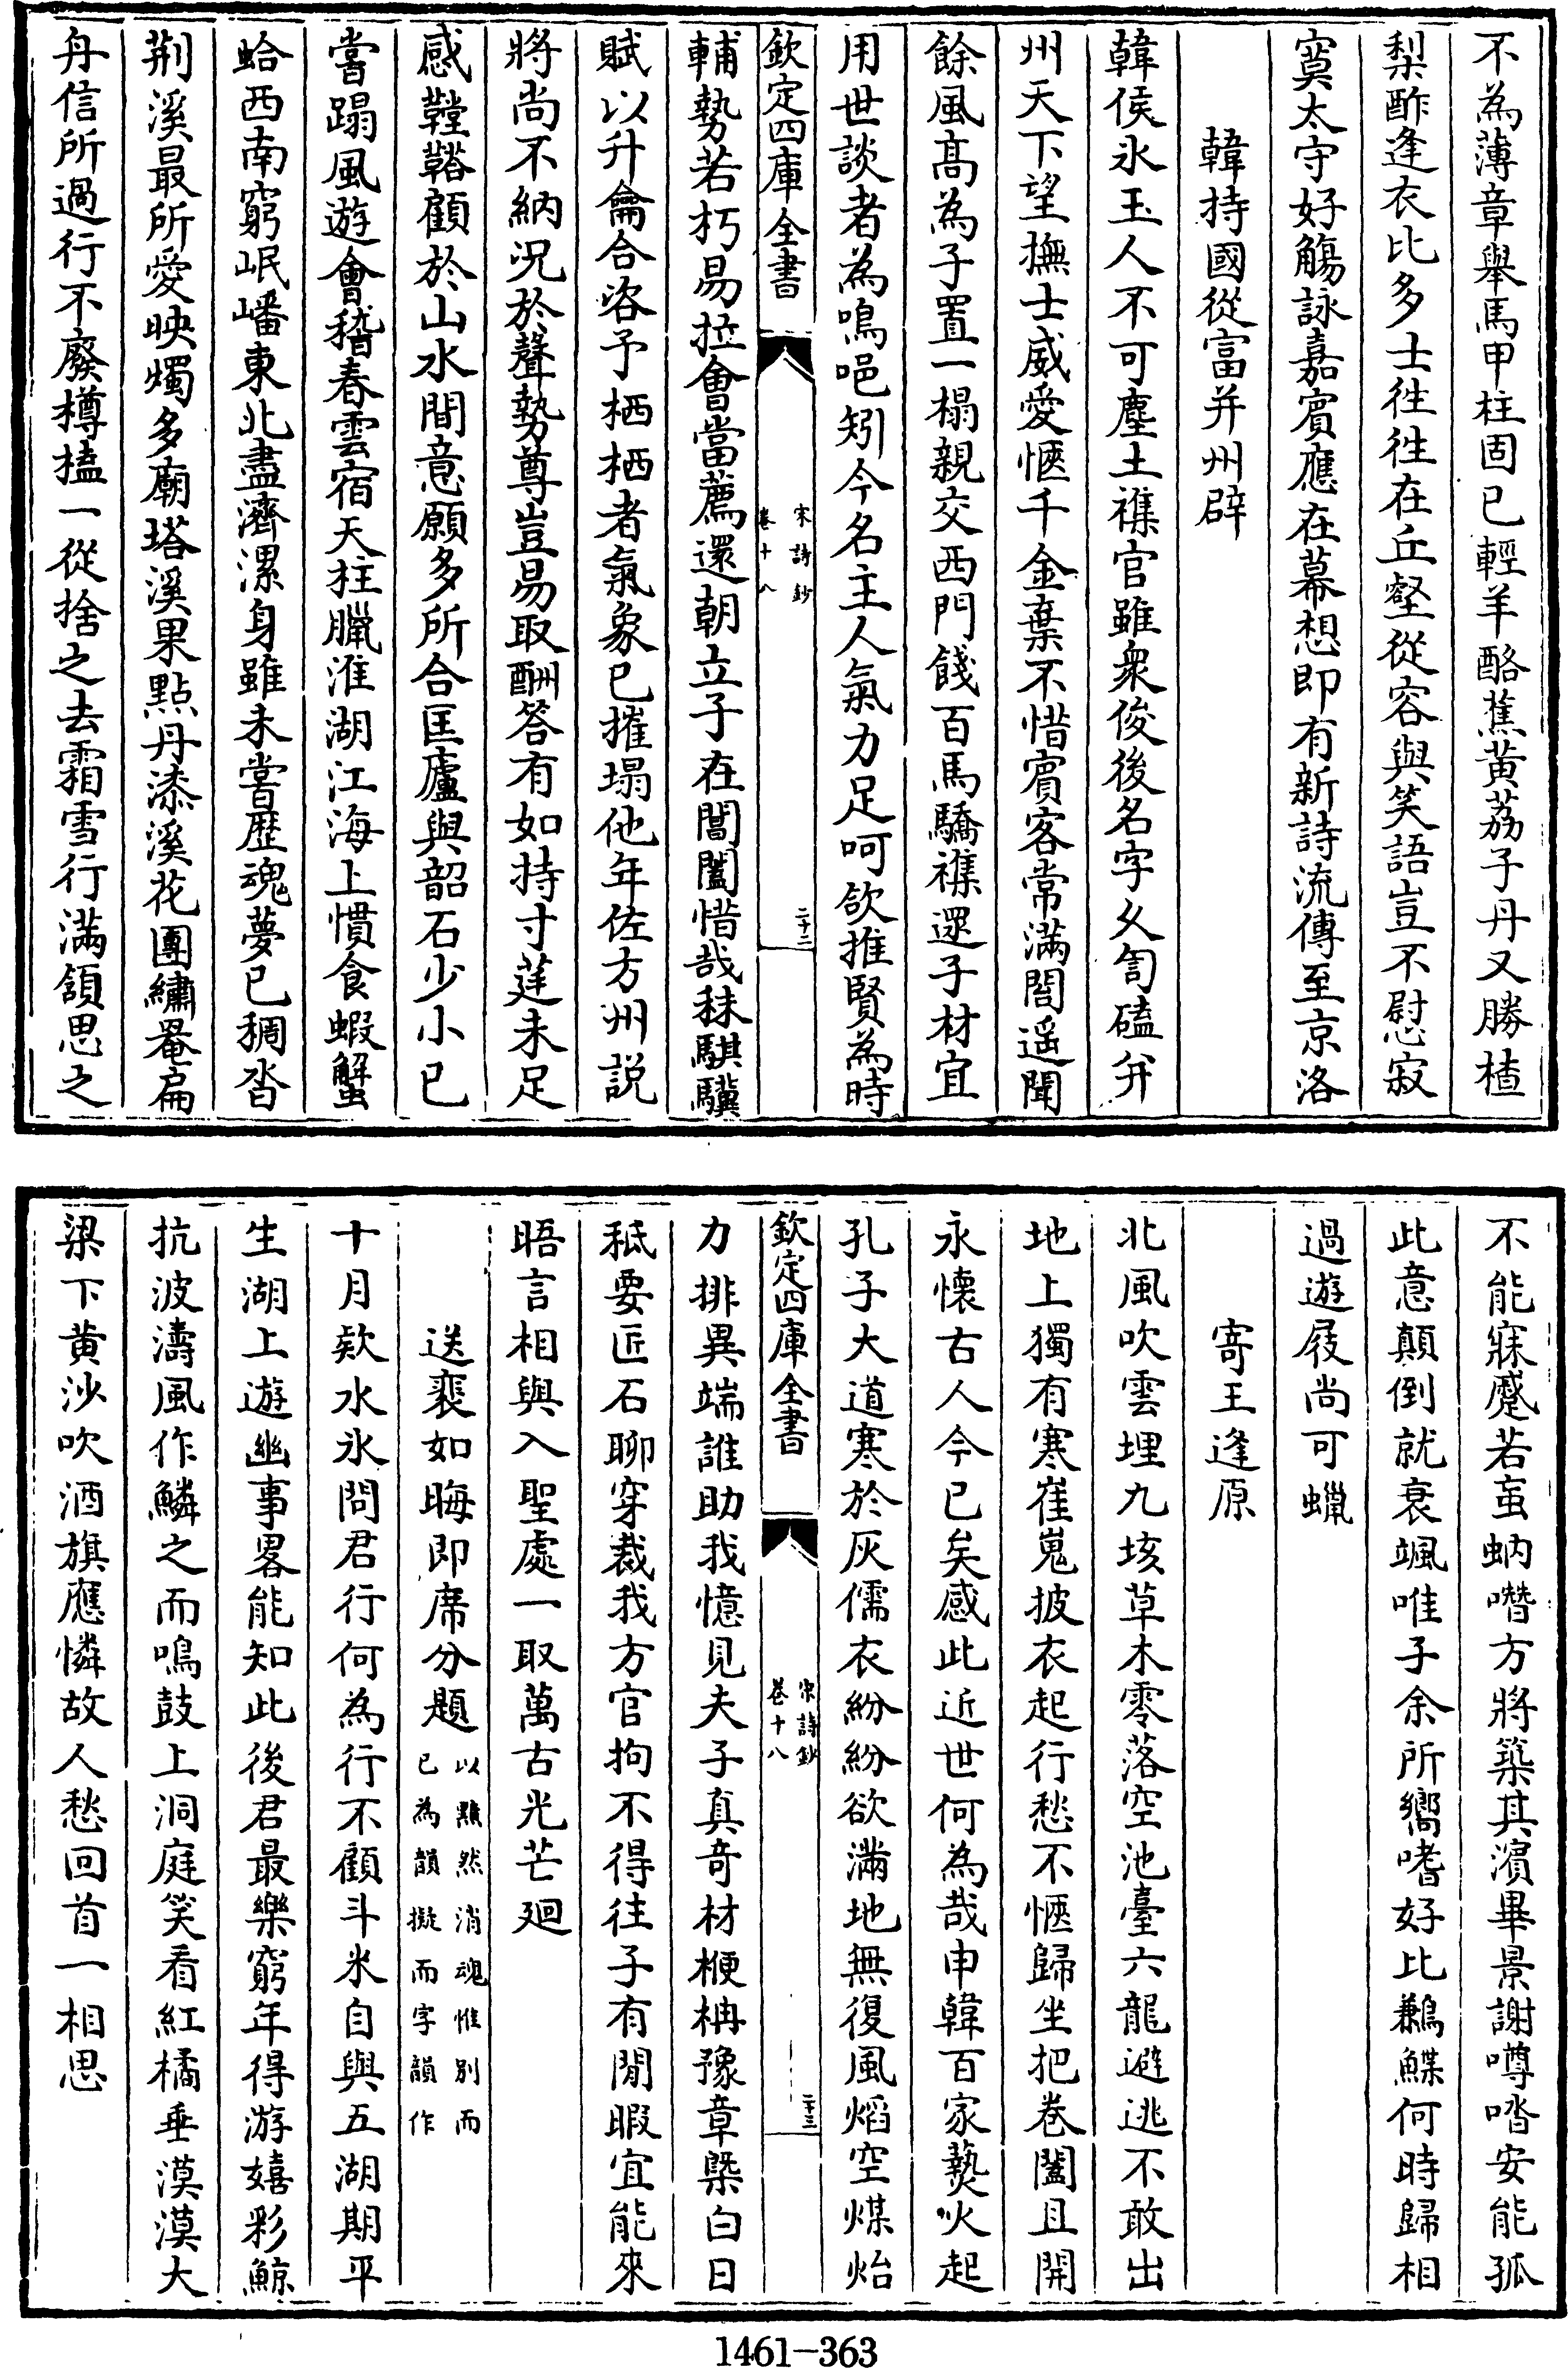 不為薄章舉馬甲柱固已輕羊酪蕉黄荔子丹又勝楂
梨酢逢衣比多士往往在丘壑從容與笑語豈不慰寂
寞太守好觴詠嘉賓應在幕想即有新詩流傳至京洛
韓持國從富并州辟
韓侯氷玉人不可塵土襍官雖衆俊後名字久訇磕并
州天下望撫士威愛愜千金棄不惜賓客常滿閤遥聞
餘風髙為子置一榻親交西門餞百馬驕襍遝子材宜
用世談者為鳴唈矧今名主人氣力足呵欱推賢為時
欽定四庫全書
宋詩鈔
卷十八
二十二
輔勢若朽易拉會當薦還朝立子在閶闔惜哉秣騏驥
賦以升龠合咨予栖栖者氣象已摧塌他年佐方州説
將尚不納況於聲勢尊豈易取酬答有如持寸莛未足
感鞺鞳顧於山水間意願多所合匡廬與韶石少小已
嘗蹋風遊會稽春雲宿天柱臘淮湖江海上慣食蝦蟹
蛤西南窮岷嶓東北盡濟漯身雖未嘗歴魂夢已稠沓
荆溪最所愛映燭多廟塔溪果點丹漆溪花團繡罨扁
舟信所過行不廢樽榼一從捨之去霜雪行滿頷思之
不能寐蹙若䖟蚋噆方將築其濱畢景謝噂㗳安能孤
此意顛倒就衰颯唯子余所嚮嗜好比鶼鰈何時歸相
過遊屐尚可蠟
寄王逢原
北風吹雲埋九垓草木零落空池臺六龍避逃不敢出
地上獨有寒崔嵬披衣起行愁不愜歸坐把卷闔且開
永懷古人今已矣感此近世何為哉申韓百家爇火起
孔子大道寒於灰儒衣紛紛欲滿地無復風焰空煤炲
欽定四庫全書
宋詩鈔
卷十八
二十三
力排異端誰助我憶見夫子真奇材梗柟豫章槩白日
秪要匠石聊穿裁我方官拘不得往子有閒暇宜能來
晤言相與入聖處一取萬古光芒廻
送裴如晦即席分題以黯然消魂惟别而
已為韻擬而字韻作
十月欵水氷問君行何為行不顧斗米自與五湖期平
生湖上遊幽事畧能知此後君最樂窮年得游嬉彩鯨
抗波濤風作鱗之而鳴鼓上洞庭笑看紅橘垂漠漠大
梁下黄沙吹酒旗應憐故人愁回首一相思
1461-363